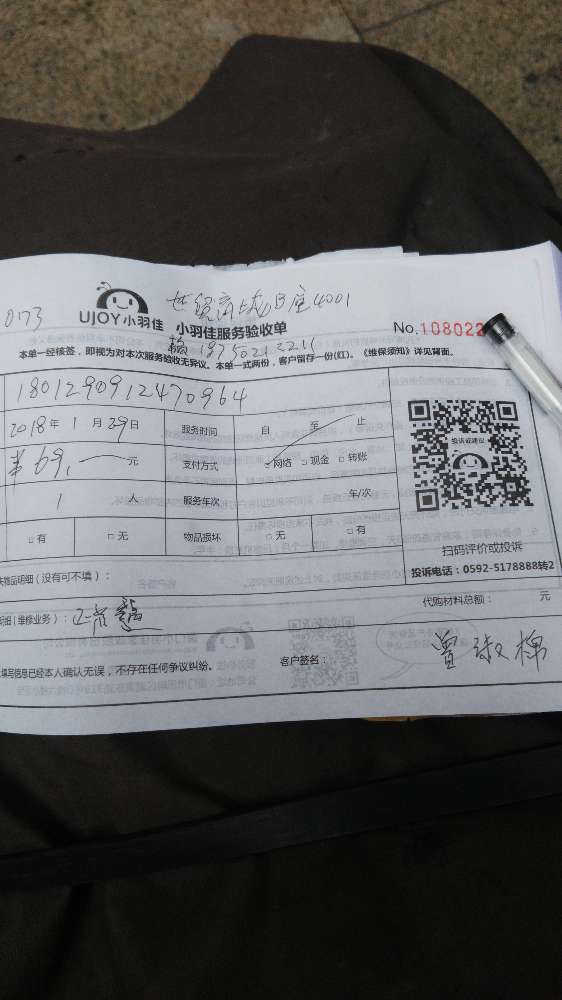 0173
UJOY小羽佳
世贸商城B座4001
小羽佳服务验收单
No.108022
本单一经核签，即视为对本次服务验收无异议。本单一式两份，客户留存一份(红)。《维保须知》详见背面。
1801290912470964
2018年1月29日 服务时间 自 至 止
¥69.一元 支付方式 ☑网络 □现金 □转账
1人 服务车次 车/次
□有 □无 物品损坏 □无 □有
投诉或建议
扫码评价或投诉
投诉电话：0592-5178888转2
物品明细（没有可不填）：
明细（维修业务）：正常
代购材料总额： 元
填写信息已经本人确认无误，不存在任何争议纠纷。
客户签名： 曾淑棉